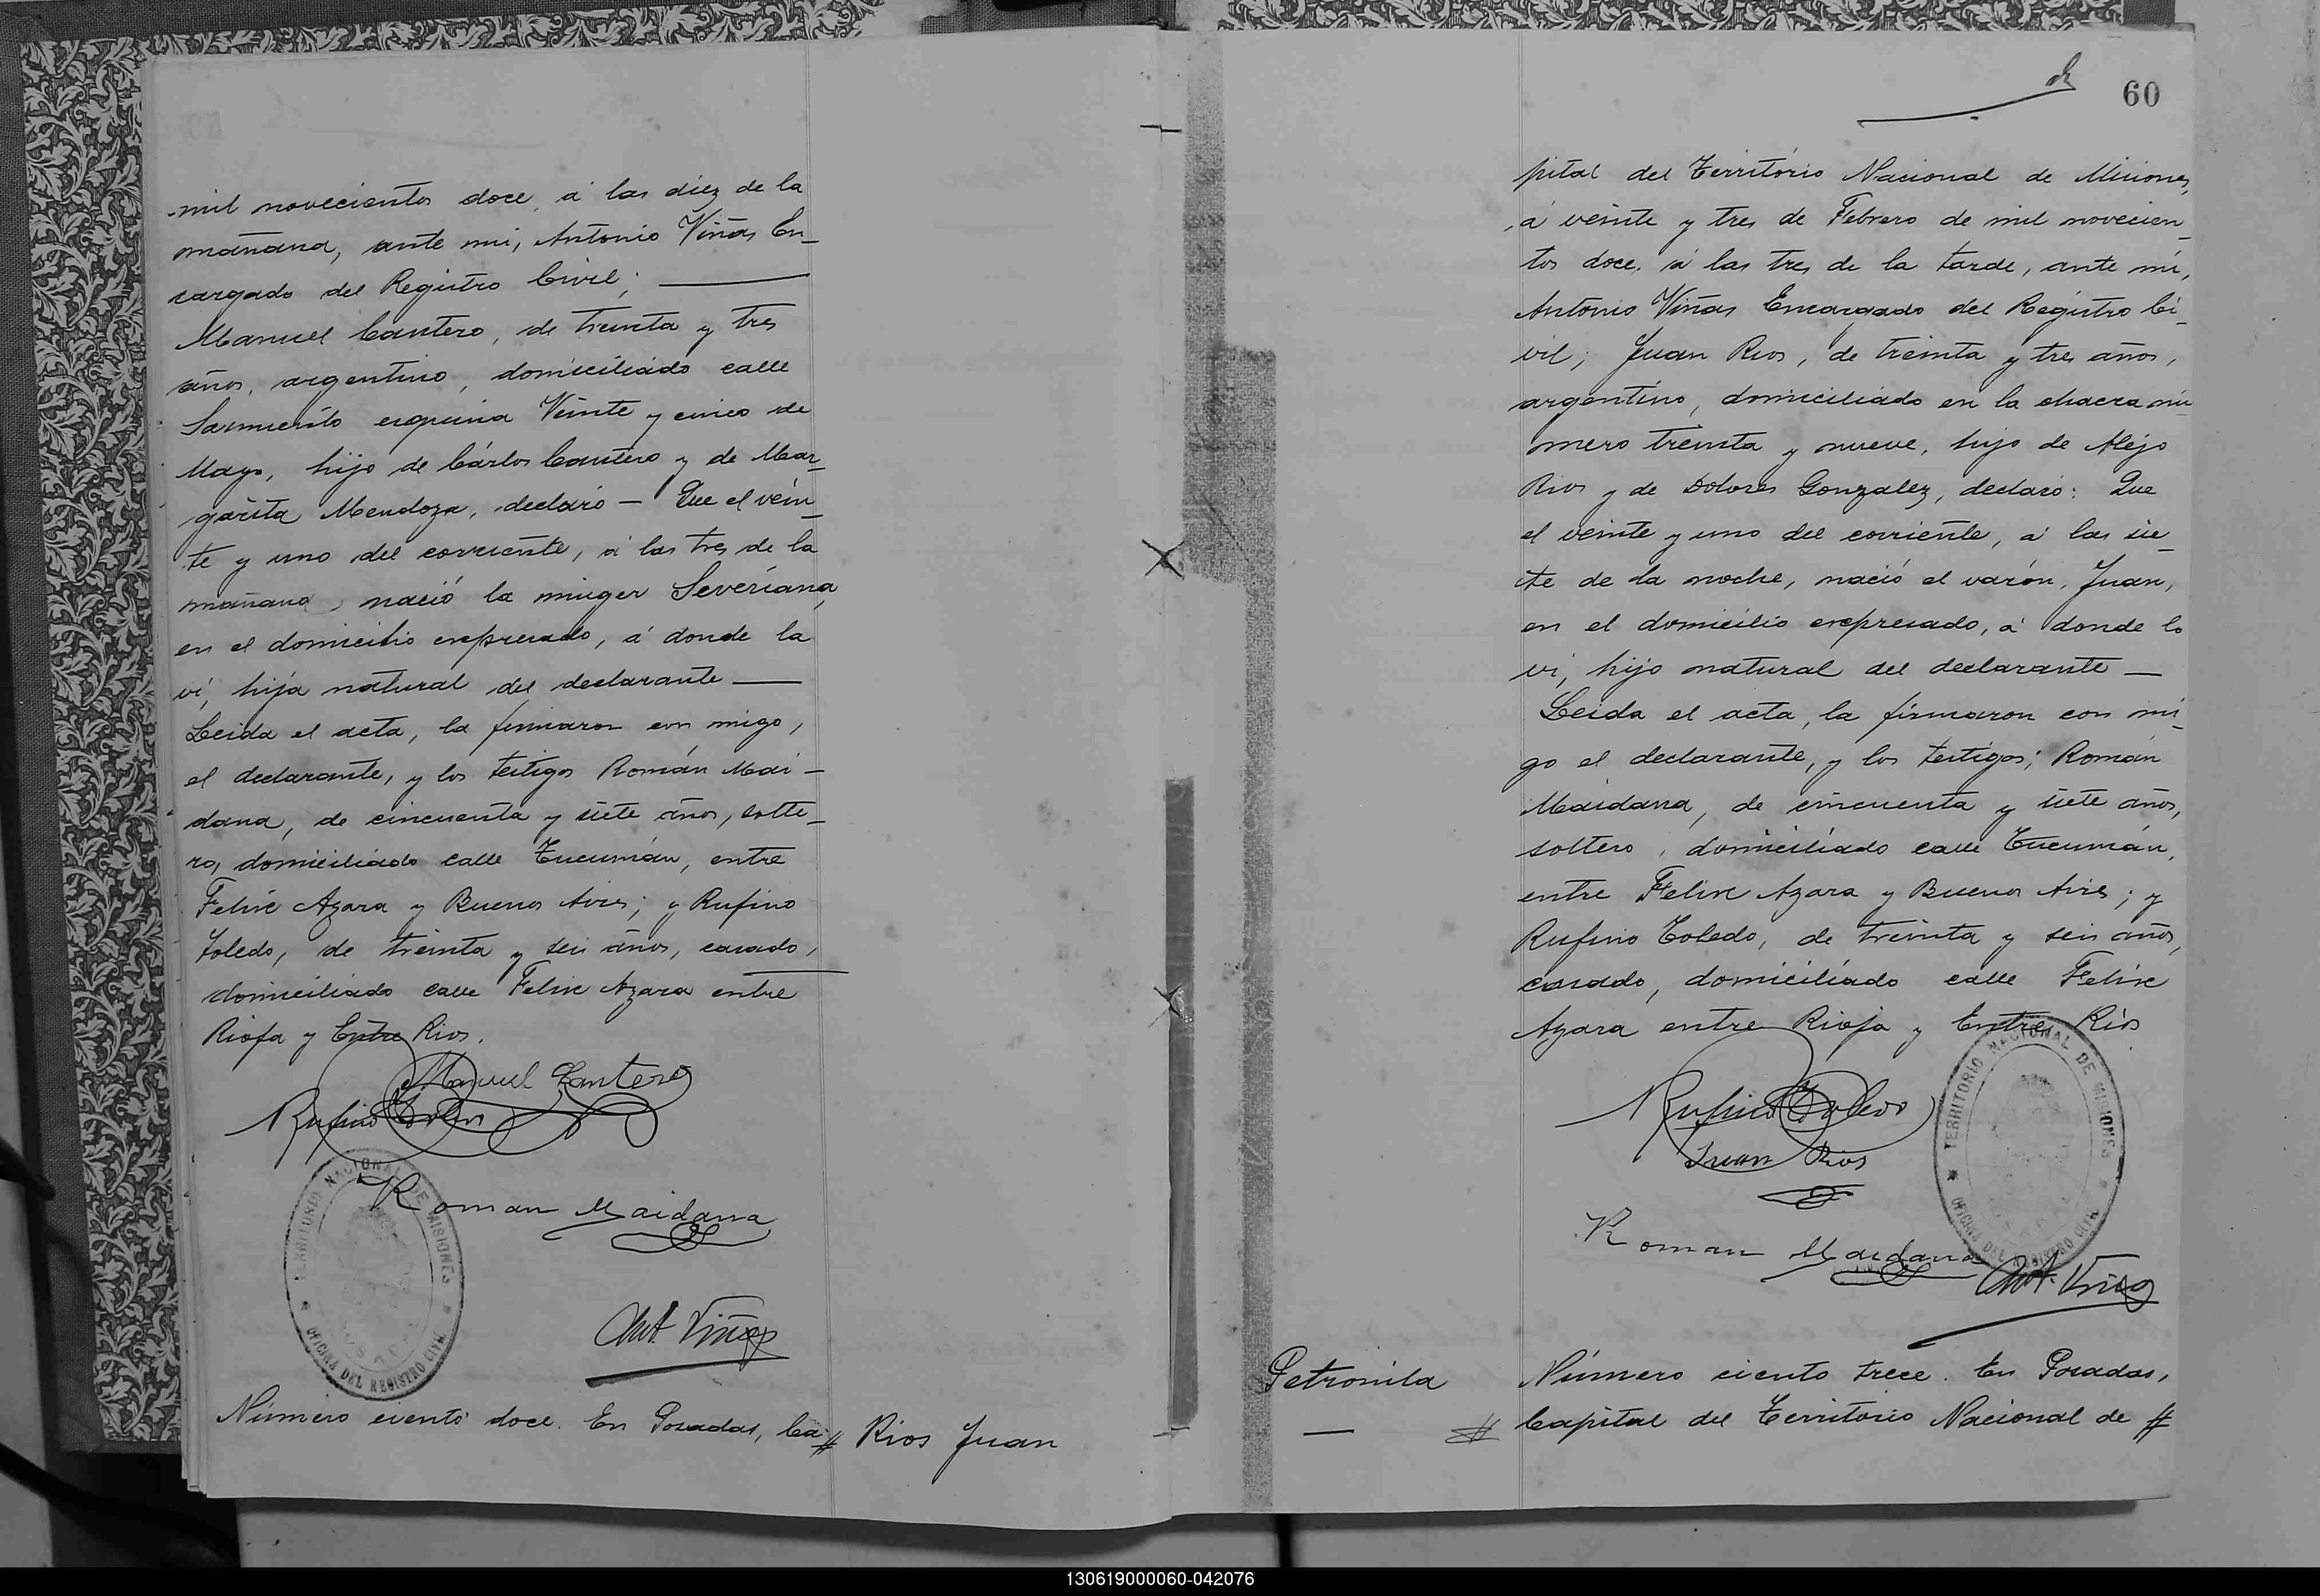 mil novecientos doce, á las diez de la
mañana, ante mi, Antonio Viñas En_
cargado del Registro Civil; ———
Manuel Cantero, de treinta y tres
años, argentino, domiciliado calle
Sarmiento esquina Veinte y cinco de
Mayo, hijo de Cárlos Cantero y de Mar_
garita Mendoza, declaró — Que el vein_
te y uno del corriente, á las tres de la
mañana, nació la muger Severiana,
en el domicilio expresado, á donde la
ví, hija natural del declarante ———
Leida el acta, la firmaron con migo,
el declarante, y los testigos Román Mai—
dana, de cincuenta y siete años, solte_
ro, domiciliado calle Tucumán, entre
Felix Azara y Buenos Aires; y Rufino
Toledo, de treinta y seis años, casado,
domiciliado calle Felix Azara entre
Rioja y Entre Rios.
Manuel Cantero
Rufino Toledo
TERRITORIO NACIONAL DE MISIONES
OFICINA DEL REGISTRO CIVIL
Roman Maidana
Ant. Viñas
Número ciento doce. En Posadas, Ca # Rios Juan
60
pital del Território Nacional de Misiones,
á veinte y tres de Febrero de mil novecien_
tos doce, á las tres de la tarde, ante mi,
Antonio Viñas Encargado del Registro Ci_
vil; Juan Rios, de treinta y tres años,
argentino, domiciliado en la chacra nú_
mero treinta y nueve, hijo de Alejo
Rios y de Dolores Gonzalez, declaró: Que
el veinte y uno del corriente, á las sie_
te de la noche, nació el varón, Juan,
en el domicilio expresado, á donde lo
ví, hijo natural del declarante —
Leida el acta, la firmaron con mi_
go el declarante, y los testigos; Román
Maidana, de cincuenta y siete años,
soltero, domiciliado calle Tucumán,
entre Felix Azara y Buenos Aires; y
Rufino Toledo, de treinta y seis años,
casado, domiciliado calle Felix
Azara entre Rioja y Entre Rios
Rufino Toledo
Juan Rios
TERRITORIO NACIONAL DE MISIONES
OFICINA DEL REGISTRO CIVIL
Roman Maidana
Ant. Viñas
Petronila
Número ciento trece. En Posadas,
# Capital del Territorio Nacional de #
130619000060-042076